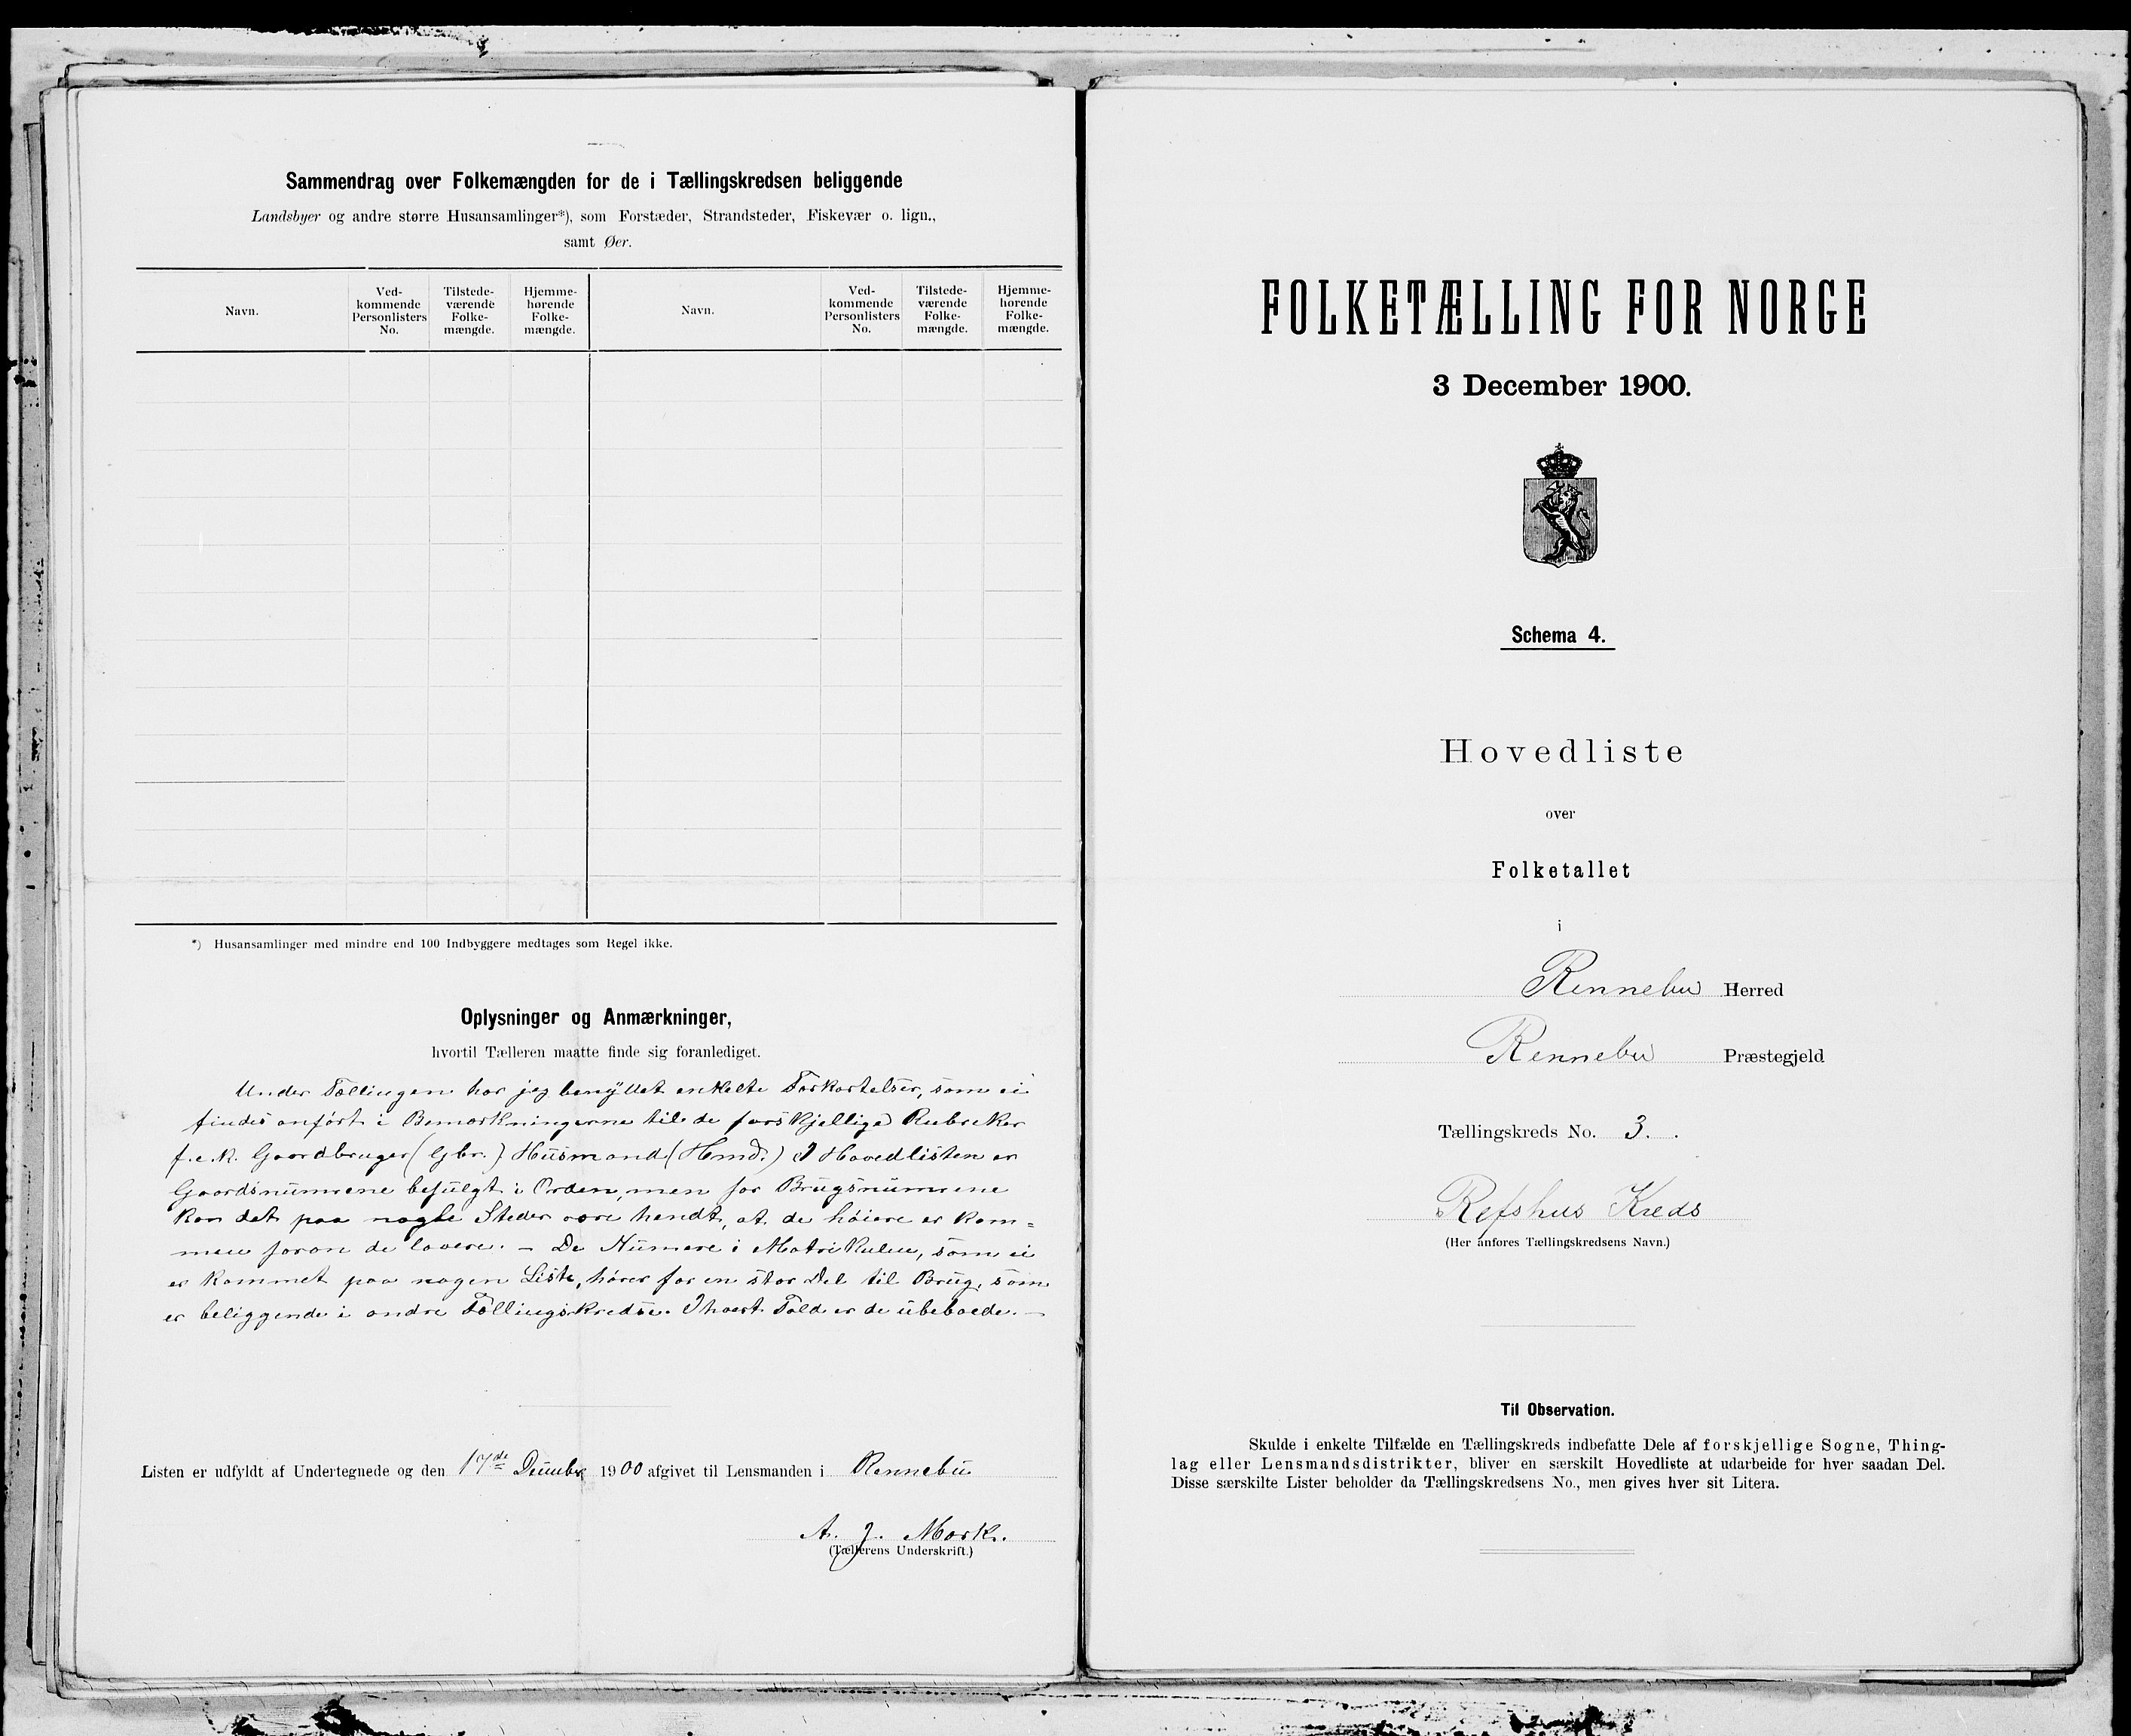 Sammendrag over Folkemængden for de i Tællingskredsen beliggende
Landsbyer og andre større Husansamlinger*), som Forstæder, Strandsteder, Fiskevær o. lign.,
samt Øer.
Navn.
Ved-
kommende
Personlisters
No.
Tilstede-
værende
Folke-
mængde.
Hjemme-
hørende
Folke-
mængde.
Navn.
Ved-
kommende
Personlisters
No.
Tilstede-
værende
Folke-
mængde.
Hjemme-
hørende
Folke-
mængde.
*) Husansamlinger med mindre end 100 Indbyggere medtages som Regel ikke.
Oplysninger og Anmærkninger,
hvortil Tælleren maatte finde sig foranlediget.
Under Tællingen har jeg benyttet enkelte Forkortelser, som ei
findes anført i Bemærkningerne til de forskjellige Rubriker
f. e. k. Gaardbruger (Gbr.) Husmand (Hmd.) I Hovedlisten er
Gaardsnumrene befulgt i Orden, men for Brugsnumrene
kan det paa nogle Steder være hendt, at de høiere er kom=
men foran de lavere. – De Numere i Matrikulen, som ei
er kommet paa nogen Liste, hører for en stor Del til Brug, som
er beliggende i andre Tællingskredse. I hvert Fald er de ubeboede. –
Listen er udfyldt af Undertegnede og den 17de Decembr 1900 afgivet til Lensmanden i Rennebu
A. J. Mærk.
(Tællerens Underskrift.)
FOLKETÆLLING FOR NORGE
3 December 1900.
Schema 4.
Hovedliste
over
Folketallet
i
Rennebu Herred
Rennebu Præstegjeld
Tællingskreds No. 3.
Refshus Kreds
(Her anføres Tællingskredsens Navn.)
Til Observation.
Skulde i enkelte Tilfælde en Tællingskreds indbefatte Dele af forskjellige Sogne, Thing-
lag eller Lensmandsdistrikter, bliver en særskilt Hovedliste at udarbeide for hver saadan Del.
Disse særskilte Lister beholder da Tællingskredsens No., men gives hver sit Litera.